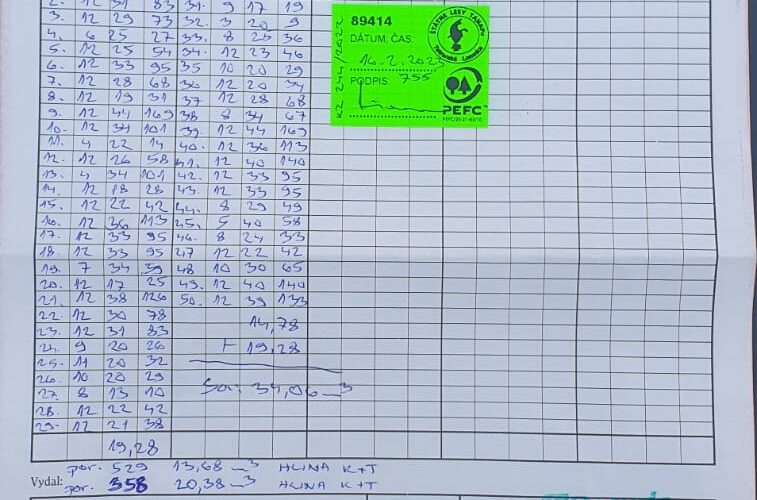 2. 12 31 83 31. 9 17 19
3. 12 29 73 32. 3 20 9
4. 6 25 27 33. 8 25 36
5. 12 25 54 34. 12 23 46
6. 12 33 95 35 10 20 29
7. 12 28 68 36 12 20 34
8. 12 19 31 37 12 28 68
9. 12 44 169 38 8 34 67
10. 12 34 101 39. 12 44 169
11. 4 22 14 40. 12 36 113
12. 12 26 58 41. 12 40 140
13. 4 34 101 42. 12 33 95
14. 12 18 28 43. 12 33 95
15. 12 22 42 44. 8 29 49
16. 12 36 113 45. 5 40 58
17. 12 33 95 46. 8 24 33
18. 12 33 95 47 12 22 42
19. 7 34 59 48 10 30 65
20. 12 17 25 49. 12 40 140
21. 12 38 126 50. 12 39 133
22. 12 30 78 14,78
23. 12 31 83
24. 9 20 26 + 19,28
25. 11 20 32
26. 10 20 29 34,06 m3
27. 8 13 10
28. 12 22 42
29. 12 21 38
19,28
Vydal: por. 529 13,68 m3 HLINA K+T
por. 358 20,38 m3 HLINA K+T
89414
DÁTUM, ČAS:
16.2.2023
PODPIS: 755
KZ 244/2022
ŠTÁTNE LESY TANAPu
PEFC